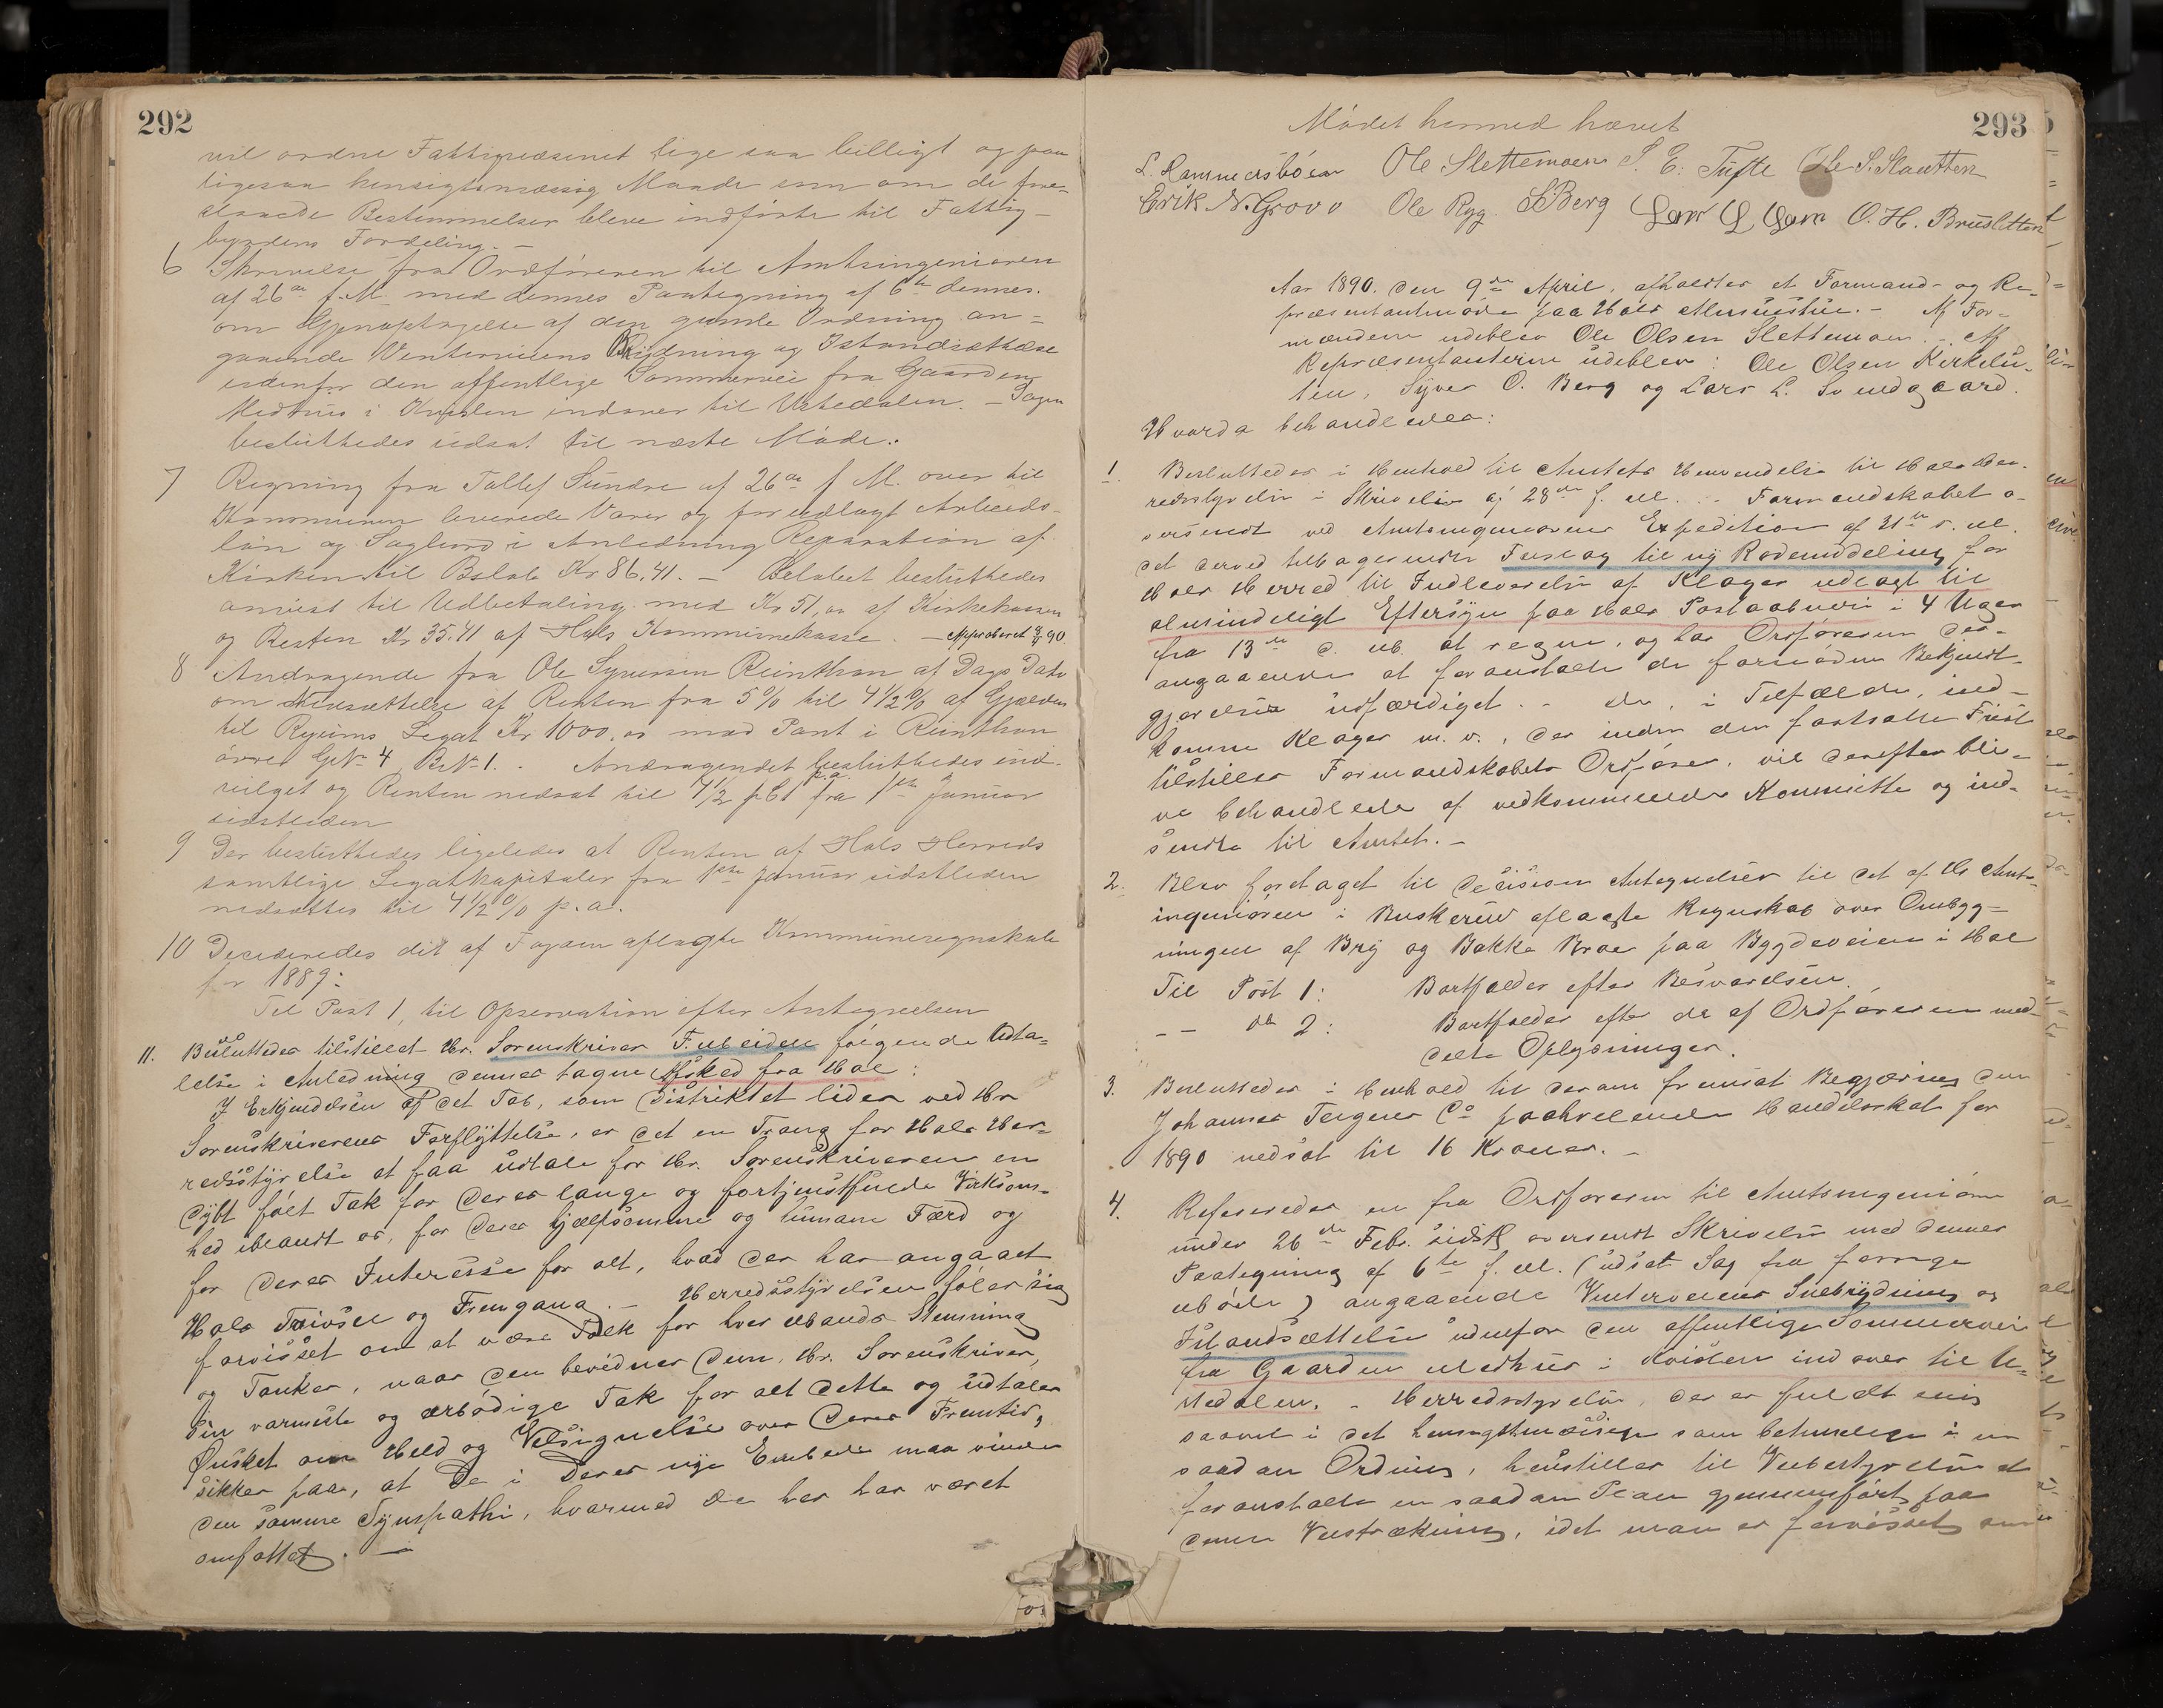 292
vil ordne Fattigvæsenet lige saa billigt og paa
ligesaa hensigtsmæssig Maade som om de fore-
slaaede Bestemmelser bleve indførte til Fattig-
byrdens Fordeling. -
6 Skrivelse fra Ordføreren til Amtsingeniøren
af 26de f. M. med dennes Paategning af 6te dennes.
om Gjenoptagelse af den gamle Ordning an-
gaaende Vinterveiens Brydning og Istandsættelse
udenfor den offentlige Sommervei fra Gaarden
Medhus i Kvislen indover til Ustedalen. - Sagen
besluttedes udsat til næste Møde.
7 Regning fra Tollef Sundre af 26de f. M. over til
Kommunen leverede Varer og forudlagt Arbeids-
løn og Saglond i Anledning Reparation af
Kirken til Beløb Kr 86,41. - Beløbet besluttedes
anvist til Udbetaling med Kr 51,00 af Kirkekassen
og Resten Kr 35.41 af Hols Kommunekasse. - Approberet 90.
8 Andragende fra Ole Syversen Reinthon af Dags Dato
om Nedsættelse af Renten fra 5 % til 4 1/2 % af Gjælden
til Ryeims Legat Kr 1000,00 mod Pant i Reinthon
øvre GNr 4 BrNr 1. - Andragendet besluttedes ind-
vilget og Renten nedsat til 4 1/2 pCt p.a. fra 1ste Januar
sidstleden
9 Der besluttedes ligeledes at Renten af Hols Herreds
samtlige Legatkapitaler fra 1ste Januar sidstleden
nedsættes til 4 1/2 % p.a.
10 Decideredes det af Fogden aflagte Kommuneregnskab
for 1889:
Til Post 1, til Opservation efter Antegnelsen
11. Besluttedes tilstillet Hr. Sorenskriver F. Meidell følgende Udta-
lelse i Anledning dennes tagne Afsked fra Hol:
I Erkjendelsen af det Tab, som Distriktet lider ved Hr
Sorenskriverens Forflyttelse, er det en Trang for Hols Her-
redsstyrelse at faa udtale for Hr. Sorenskriveren en
dybt følt Tak for Deres lange og fortjenstfulde Virksom-
hed iblandt os, for Deres hjælpsomme og humane Færd og
for Deres Interesse for alt, hvad der har angaaet
Hols Trivsel og Fremgang. - Herredsstyrelsen føler sig
forvisset om at være Tolk for hver Mands Stemning
og Tanker, naar den bevidner Dem, Hr. Sorenskriver,
sin varmeste og ærbødige Tak for alt dette og udtaler
Ønsket om Held og Velsignelse over Deres Fremtid,
sikker paa, at De i Deres nye Embede maa vinde
den samme Sympathi, hvormed De her har været
omfattet. -
293
Mødet hermed hævet
L. Hammersbøen Ole Slettemoen S. E. Tufte Ole S. Slaatten
Erik N. Grovo Ole Ryg S Berg Lars L O. H. Brusletten
Aar 1890. den 9de April, afholdtes et Formand- og Re-
præsentantmøde paa Hols Meusustue. - Af For-
mændene udeblev Ole Olsen Slettemoen. - Af
Repræsentanterne udeblev: Ole Olsen Kirkelu-
ten, Syver O. Berg og Lars L. Svendsgaard.
Hvorda behandledes:
1. Besluttedes i Henhold til Amtets Henvendelse til Hols Her-
redsstyrelse i Skrivelse af 28de f. M. - Formandskabet o-
versendt ved Amtsingeniørens Expedition af 31te s. M.
det derved tilbagesendte Forslag til ny Rodeinddeling for
Hols Herred til Indleverelse af Klager udlagt til
almindeligt Eftersyn paa Hols Postaabneri i 4 Uger
fra 13de d. M. at regne, og har Ordføreren des-
angaaende at foranstalte de fornødne Bekjendt-
gjørelser udfærdiget. - de, i Tilfælde, ind-
komne Klager m. v., der inden den fastsatte Frist
tilstilles Formandskabets Ordfører, vil derefter bli-
ve behandlede af vedkommende Kommitte og ind-
sendte til Amtet. -
2. Blev foretaget til Decision Antegnelser til det af Hr Amts-
ingeniøren i Buskerud aflagte Regnskab over Ombyg-
ningen af Bry og Bakke Broer paa Bygdeveien i Hol
Til Post 1: Bortfalder efter Besvarelsen.
- - do 2: Bortfalder efter de af Ordføreren med-
delte Oplysninger.
3. Besluttedes i Henhold til derom fremsat Begjæring den
Johannes Teigens Co paahvilende Handelsskat for
1890 nedsat til 16 Kroner. -
4. Refereredes en fra Ordføreren til Amtsingeniøren
under 26de Febr. sidstl oversendt Skrivelse med dennes
Paategning af 6te f. M. (udsat Sag fra forrige
Møde) angaaende Vinterveiens Snebrydning og
Istandsættelse udenfor den offentlige Sommervei
fra Gaarden Medhus i Kvislen indover til U-
stedalen. - Herredsstyrelsen, der er fuldt enig
saavel i det hensigtsmæssige som betimelige i en
saadan Ordning, henstiller til Veibestyrelsen at
foranstalte en saadan Plan gjennemført paa
denne Veistrækning, idet man er forvisset om